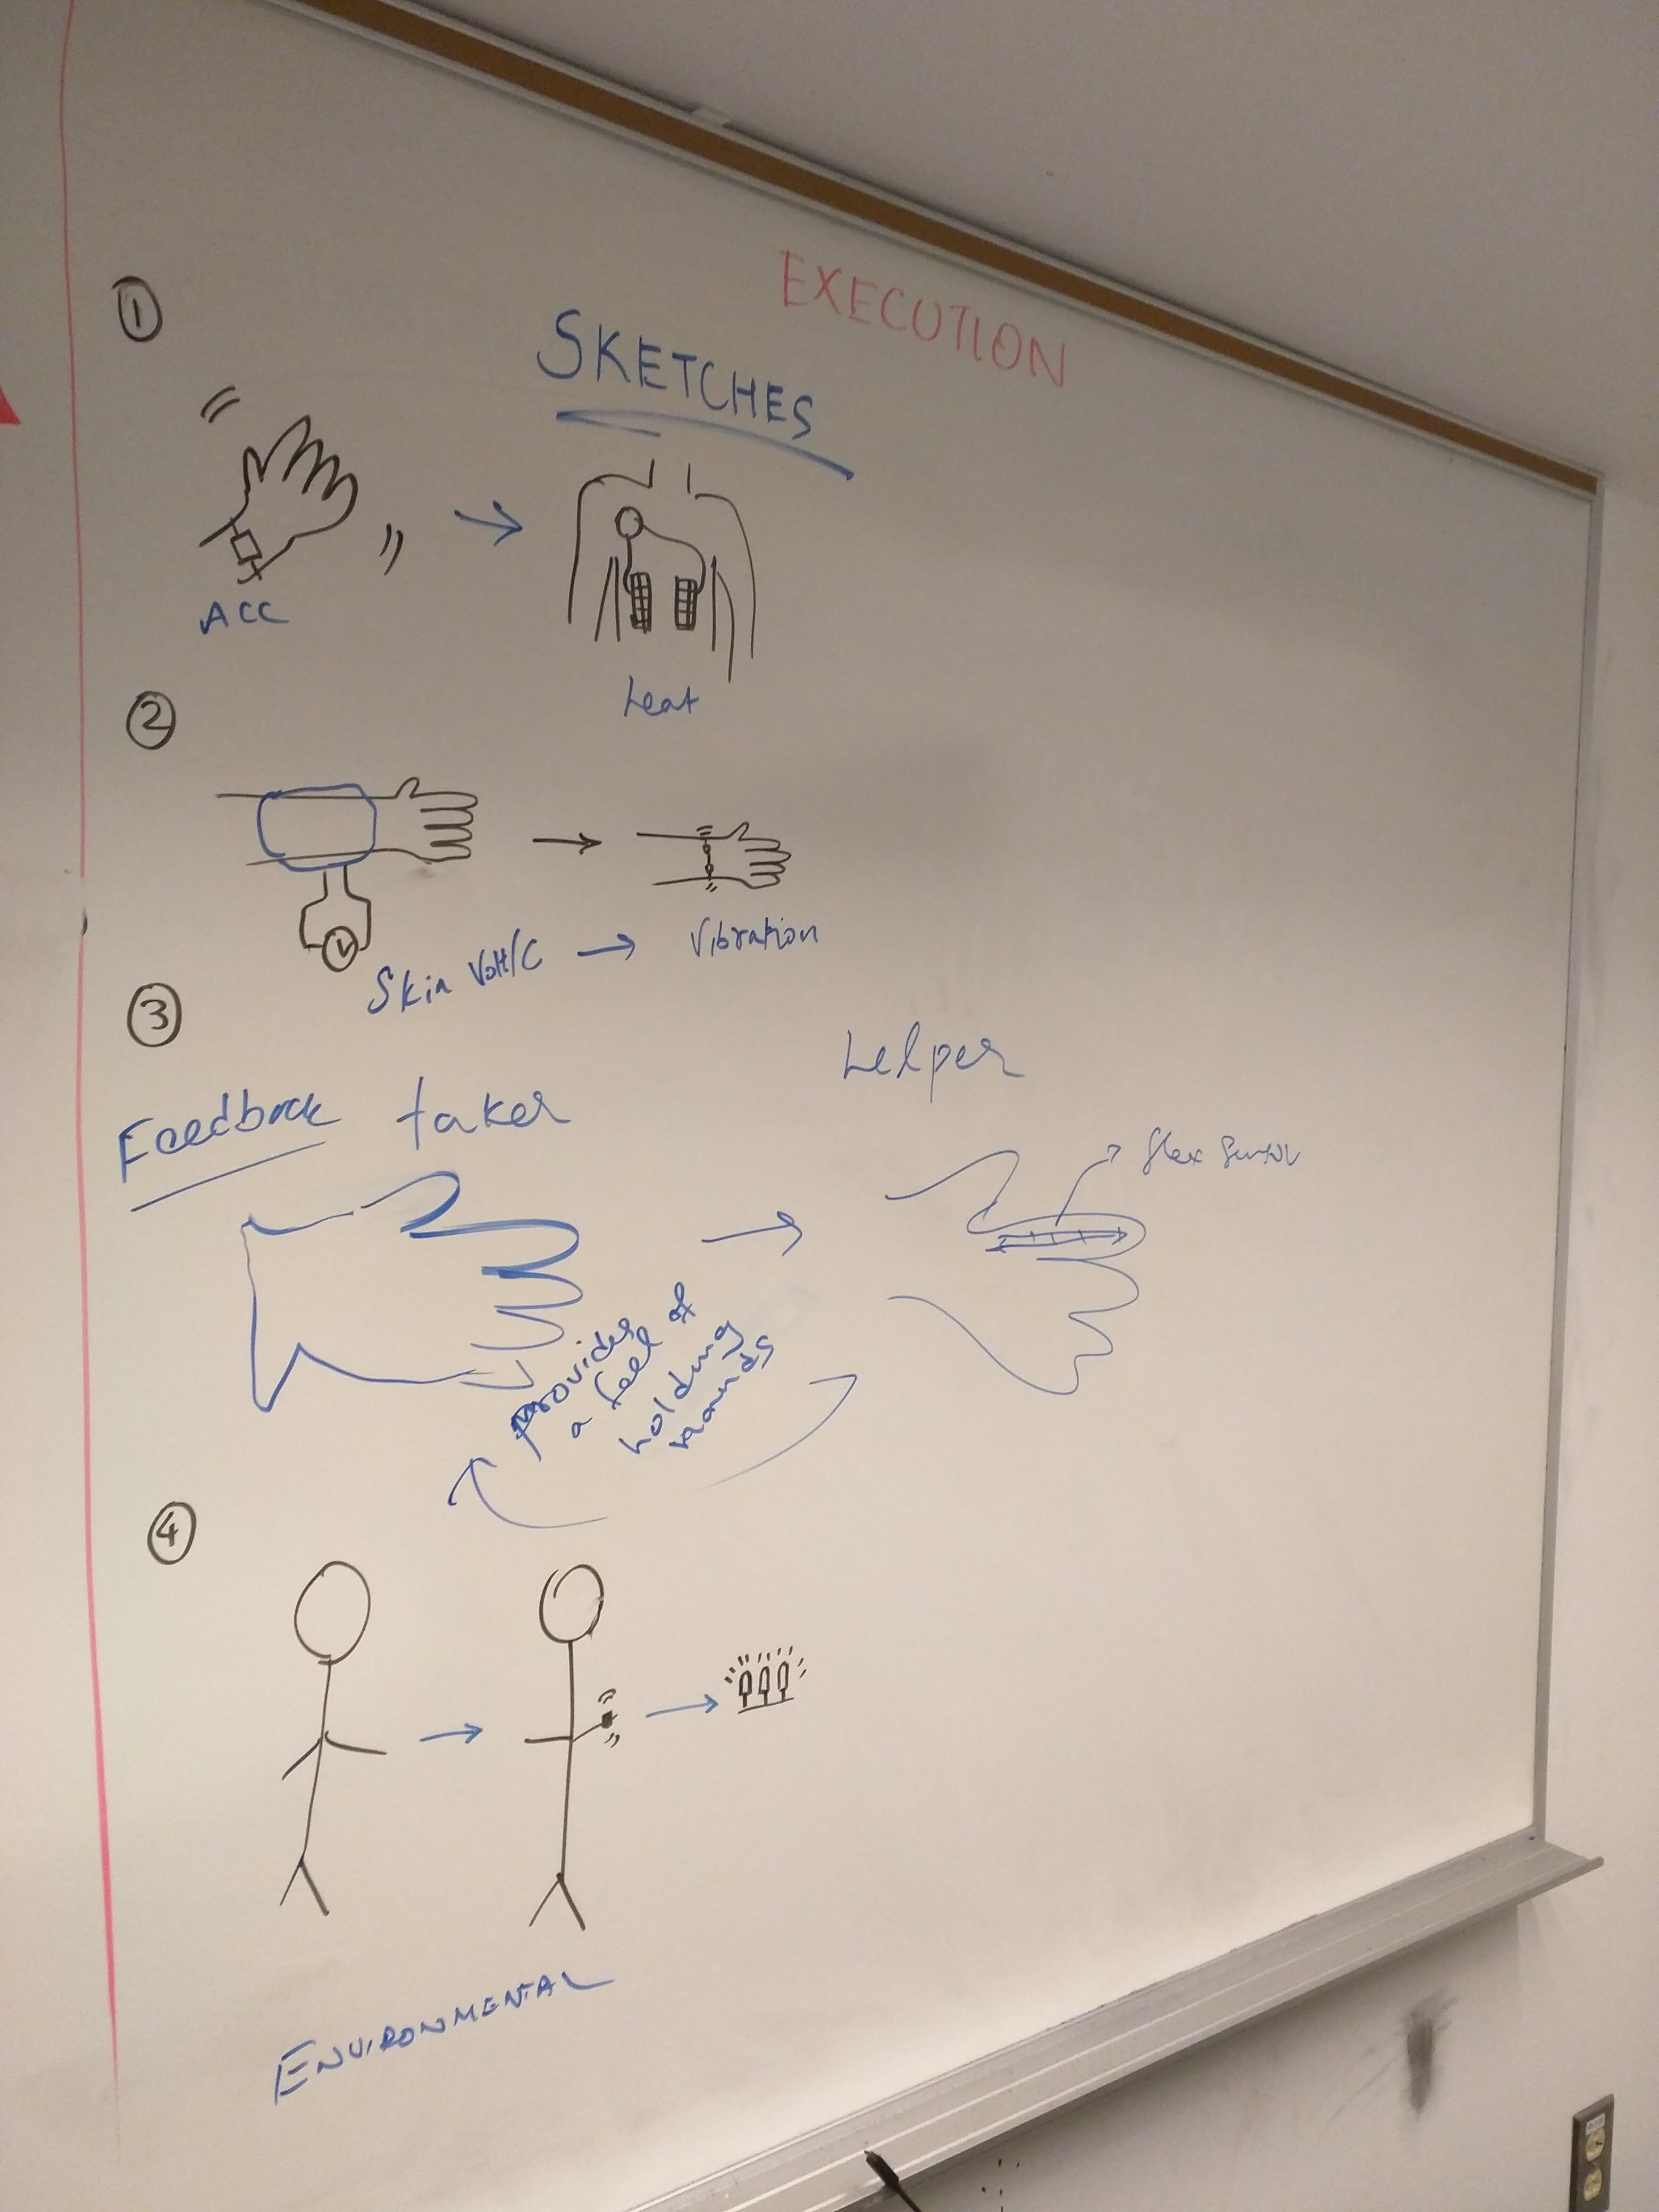 EXECUTION
SKETCHES
1
ACC
heat
2
V
Skin Volt/C → Vibration
3
Feedback taker
helper
flex sensor
provides
a feel of
holding
hands
4
ENVIRONMENTAL